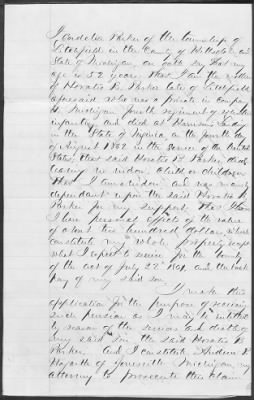 I Cordelia Parker of the township of
Litchfield in the County of Hillsdale and
State of Michigan, on oath say that my
age is 52 years. That I am the mother
of Horatio B. Parker late of Litchfield
aforesaid, who was a private in Company
Michigan fourth regiment of
infantry and died at Harrison's Landing
in the State of Virginia on the fourth day
of August 1862 in the service of the United
States, that said Horatio B. Parker died
leaving no widow, child or children
That I am a widow and was mainly
dependant upon the said Horatio B
Parker for my support. That
I have personal effects of the value
of about two hundred dollars which
constitute my whole property except
what I expect to receive from the bounty
of the act of July 22d 1861, and the back
pay of my said son.
I make this
application for the purpose of receiving
such pension as I may be entitled
by reason of the services and death of
my said son the said Horatio B
Parker. And I constitute Andrew
of Jonesville Michigan my
attorney to prosecute this claim